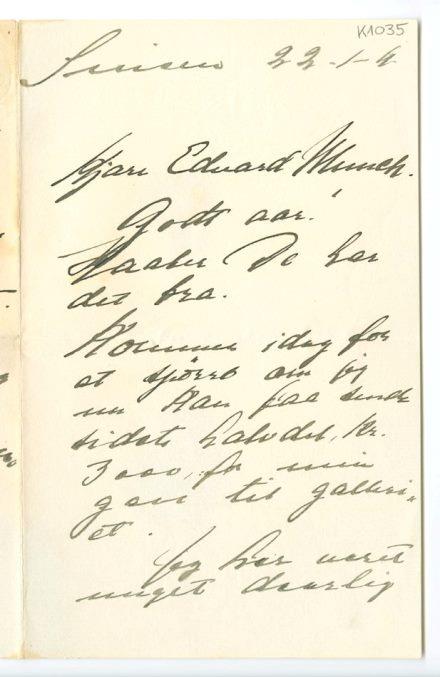 K1035
Sinsen 22-1-4
Kjære Edvard Munch.
Godt aar!
Haaber De har
det bra.
Kommer idag for
at spörre om jeg
nu kan faa sende
sidste halvdel, Kr.
3000, for min
gave til galleri-
et.
Jeg har været
meget daarlig